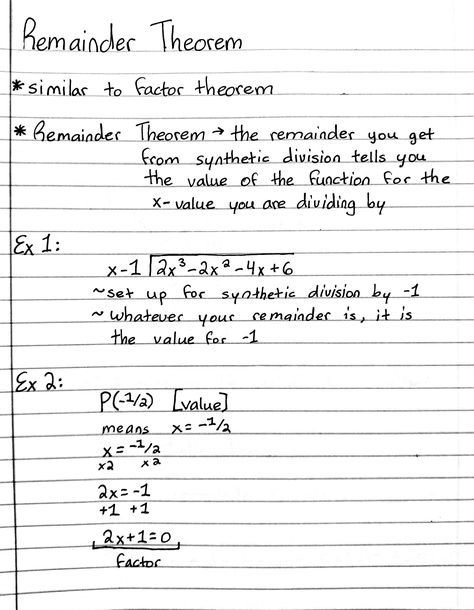 Remainder Theorem
* similar to factor theorem
* Remainder Theorem → the remainder you get
from synthetic division tells you
the value of the function for the
x-value you are dividing by
Ex 1:
x-1 ⟌2x³-2x²-4x+6
~set up for synthetic division by -1
~ whatever your remainder is, it is
the value for -1
Ex 2:
P(-1/2) [value]
means x= -1/2
x= -1/2
x2 x2
2x= -1
+1 +1
2x+1=0
factor